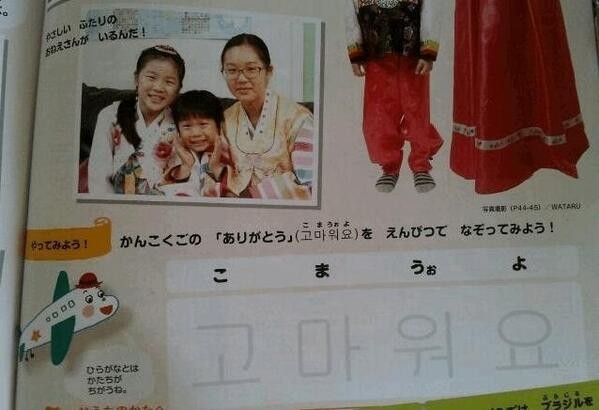 やさしい ふたりの
おねえさんが いるんだ!
写真撮影(P44-45)/WATARU
やってみよう!
かんこくごの 「ありがとう」(고마워요)を えんぴつで なぞってみよう!
こ ま うぉ よ
こ ま うぉ よ
고 마 워 요
ひらがなとは
かたちが
ちがうね。
ブラジルを
ぶらじる